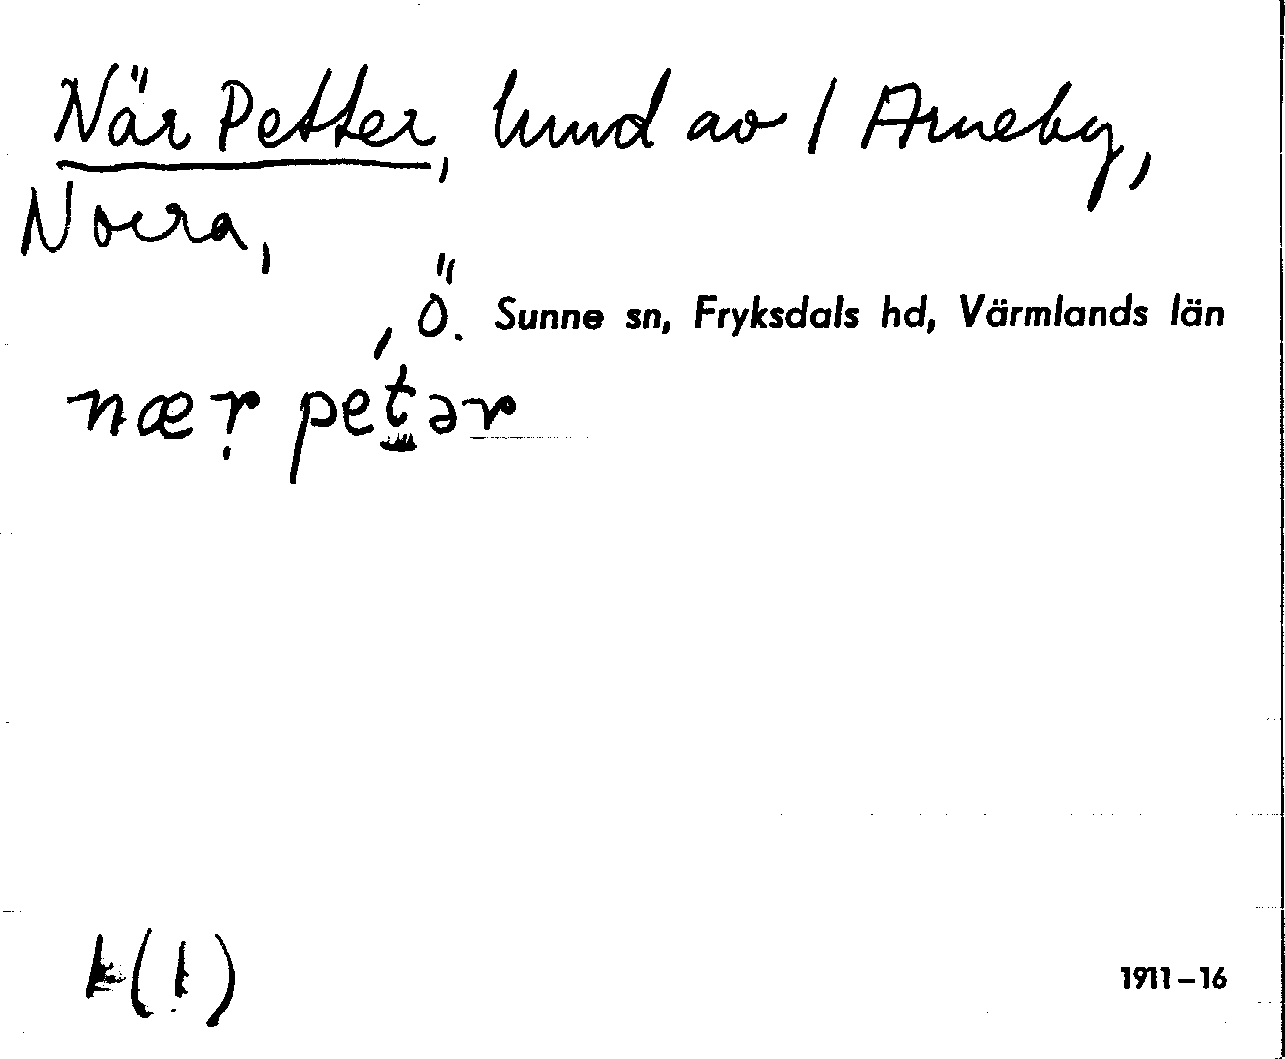 När Petter, lund av 1 Arneby,
Norra,
, Ö. Sunne sn, Fryksdals hd, Värmlands län
næṛ petər
k(1)
1911–16